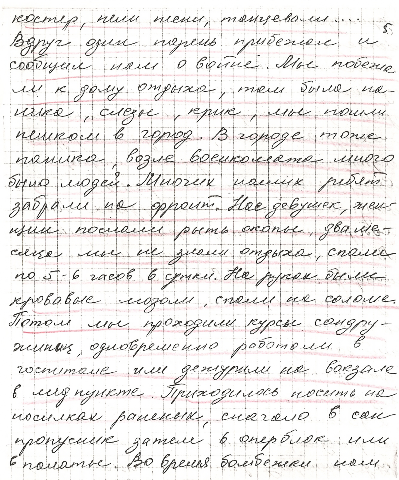 костер, пели песни, танцевали....
5.
Вдруг один парень прибежал и
сообщил нам о войне. Мы побежа
ли к дому отдыха, там была па-
ника, слезы, крик, мы пошли
пешком в город. В городе тоже
паника, возле военкомата много
было людей. Многих наших ребят
забрали на фронт. Нас девушек, жен-
щин послали рыть окопы, два ме-
сяца мы не знали отдыха, спали
по 5-6 часов в сутки. На руках были
кровавые мозоли, спали на соломе.
Потом мы проходили курсы сандру-
жиниц, одновременно работали в
госпитале или дежурили на вокзале
в медпункте. Приходилось носить на
носилках раненых, сначала в сан
пропускник затем в оперблок или
в палаты. Во время бомбежки нам